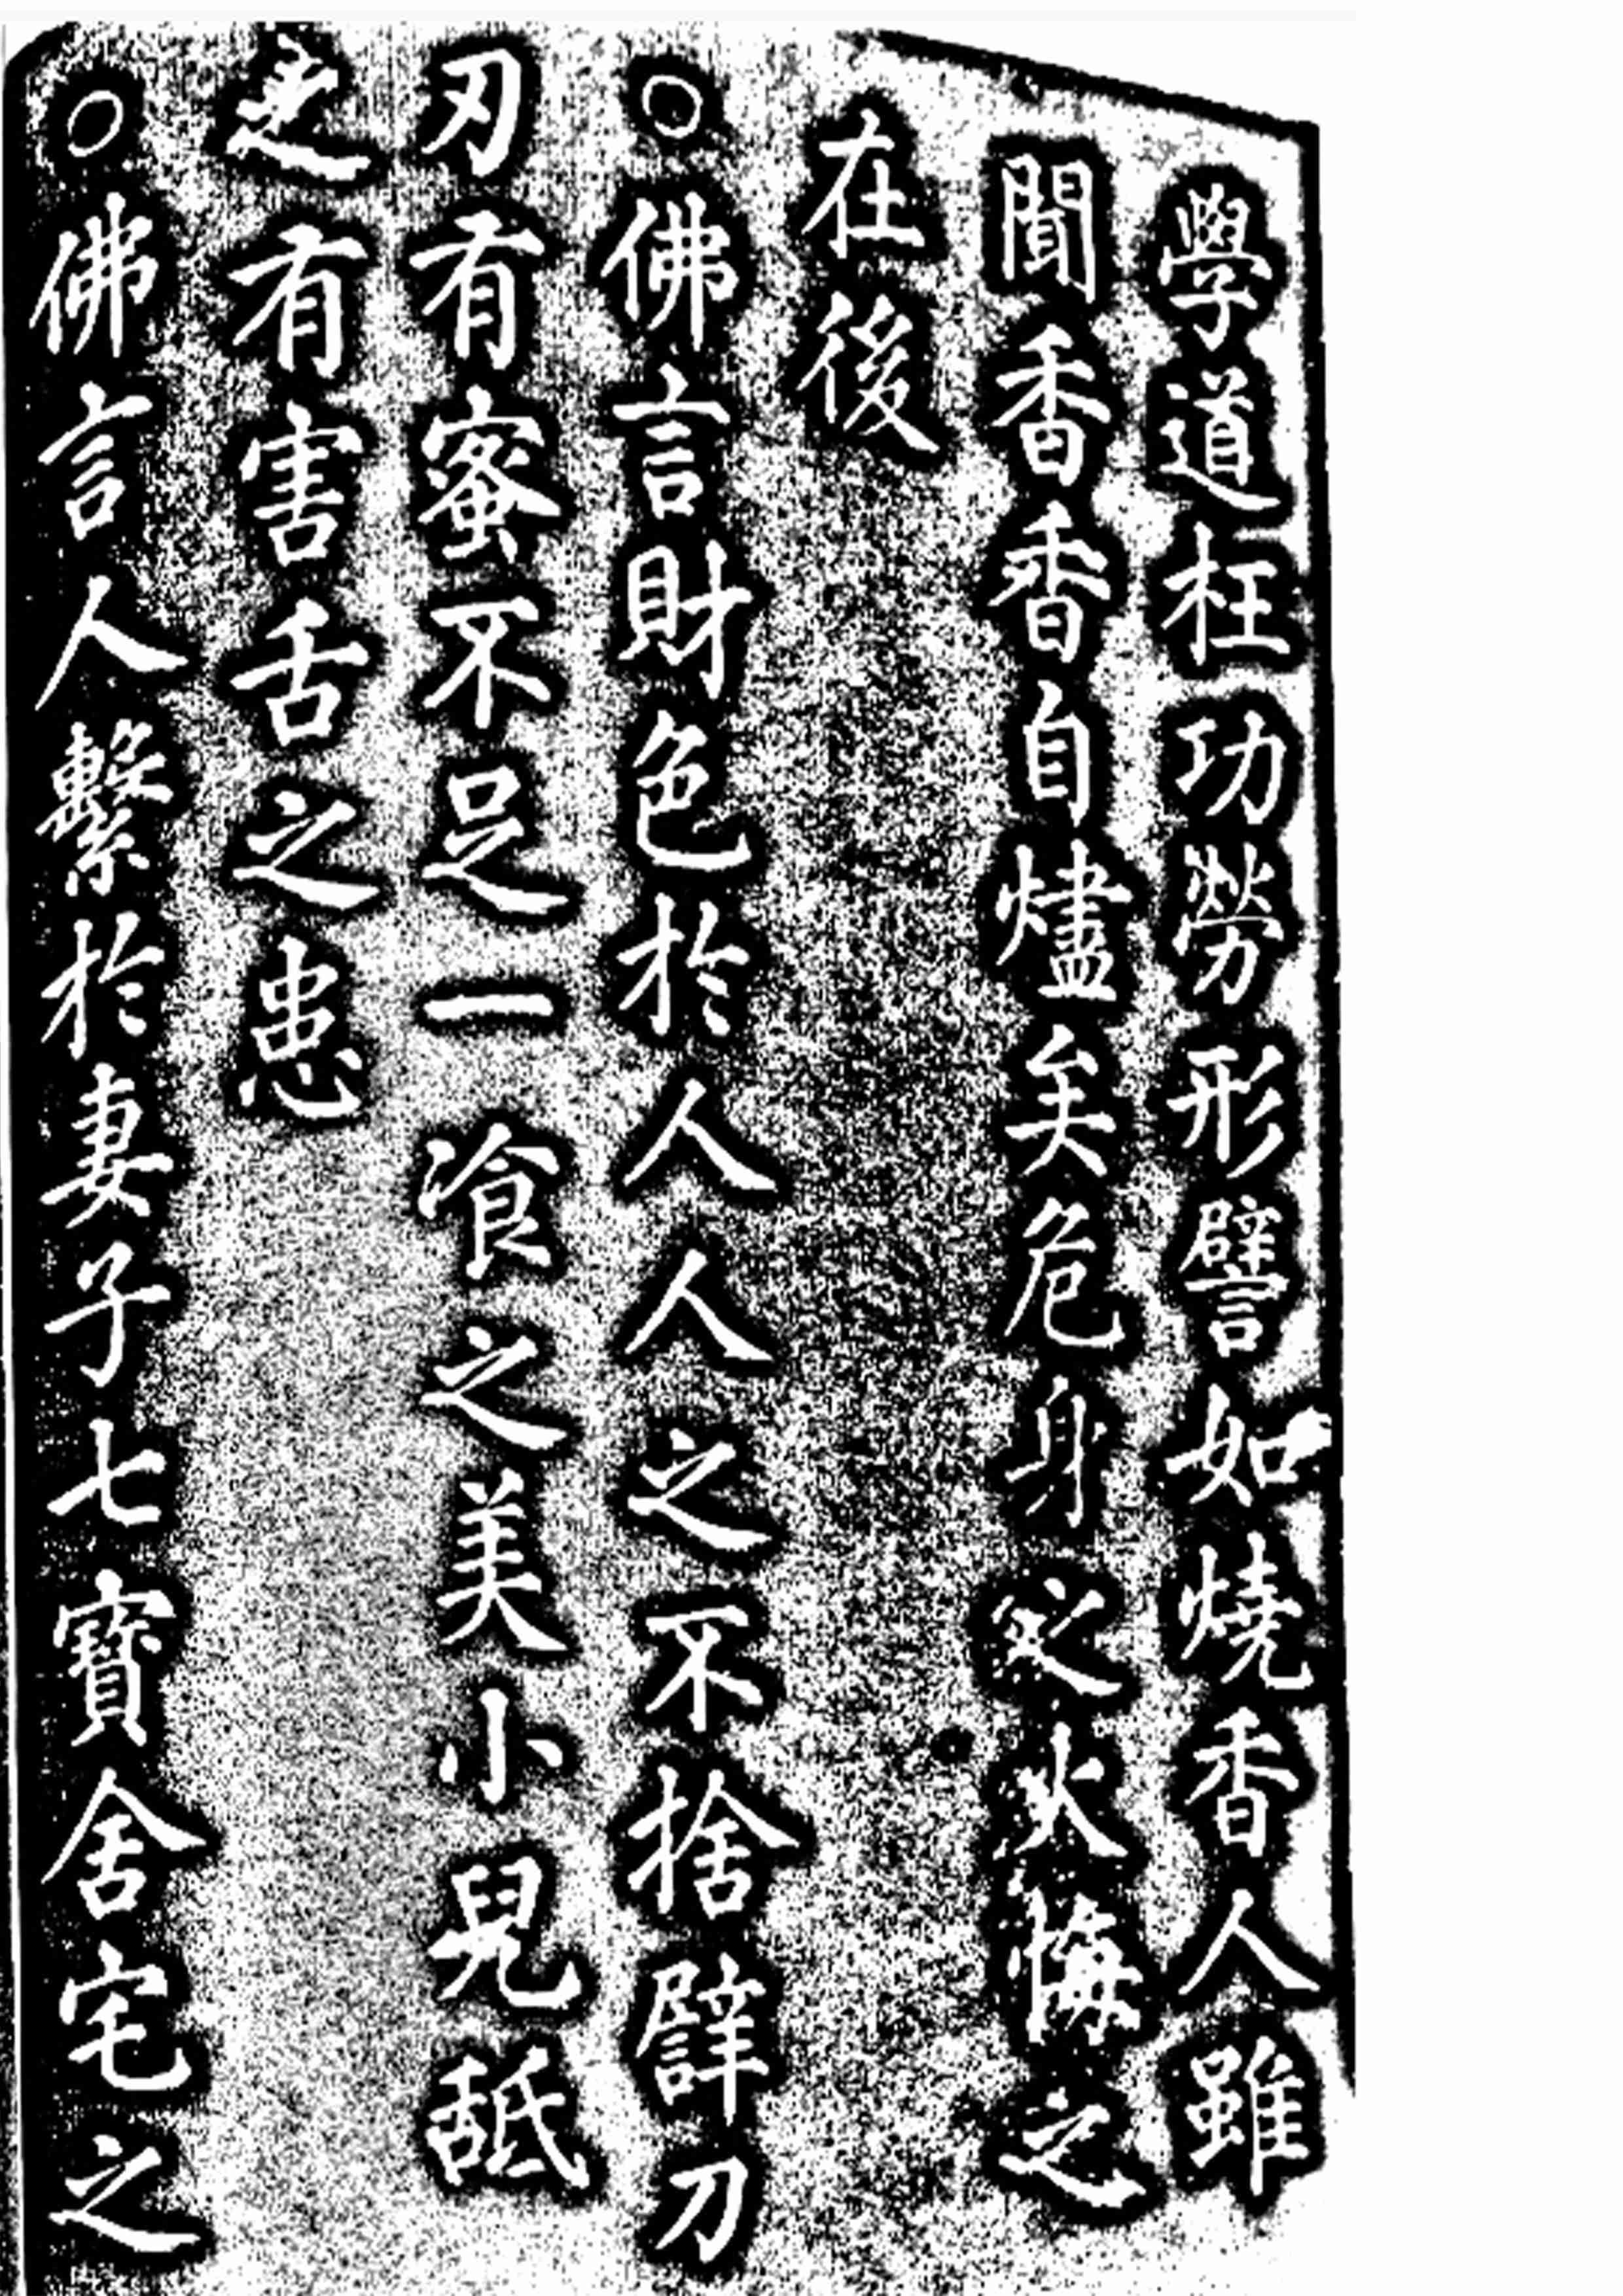 學道枉功勞形譬如燒香人雖
聞香香自燼矣危身之火悔之
在後
○佛言財色於人人之不捨譬刀
刃有蜜不足一飡之美小兒舐
之有害舌之患
○佛言人繫於妻子七寶舍宅之